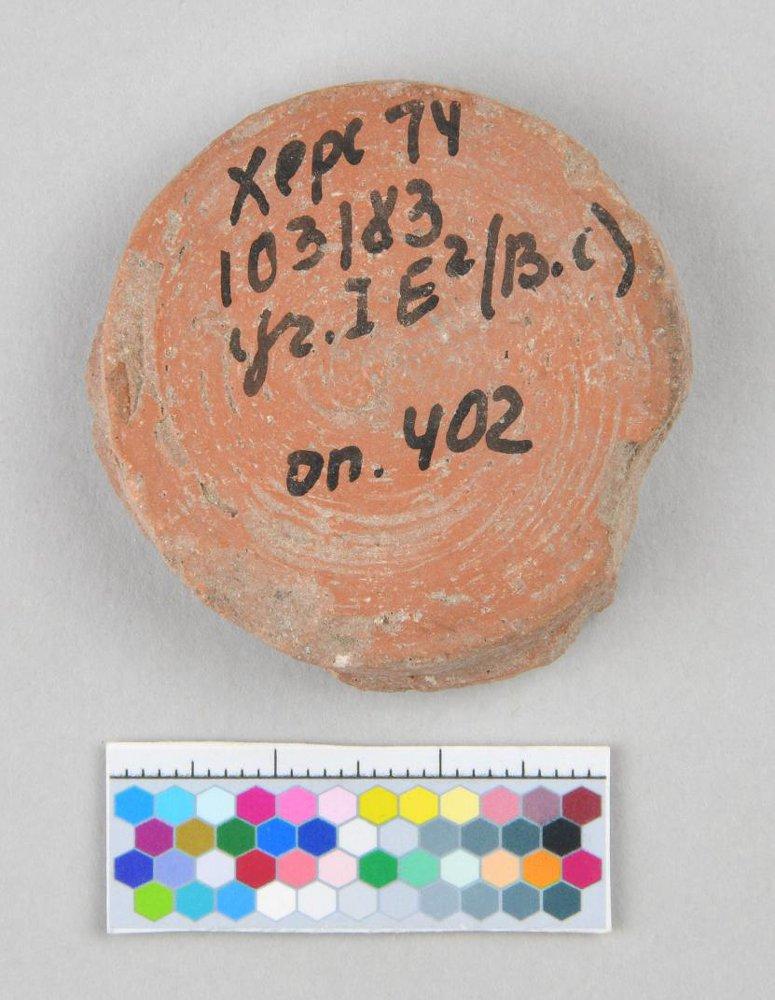 Херс 74
103183
уч. I Е² (В.С)
оп. 402